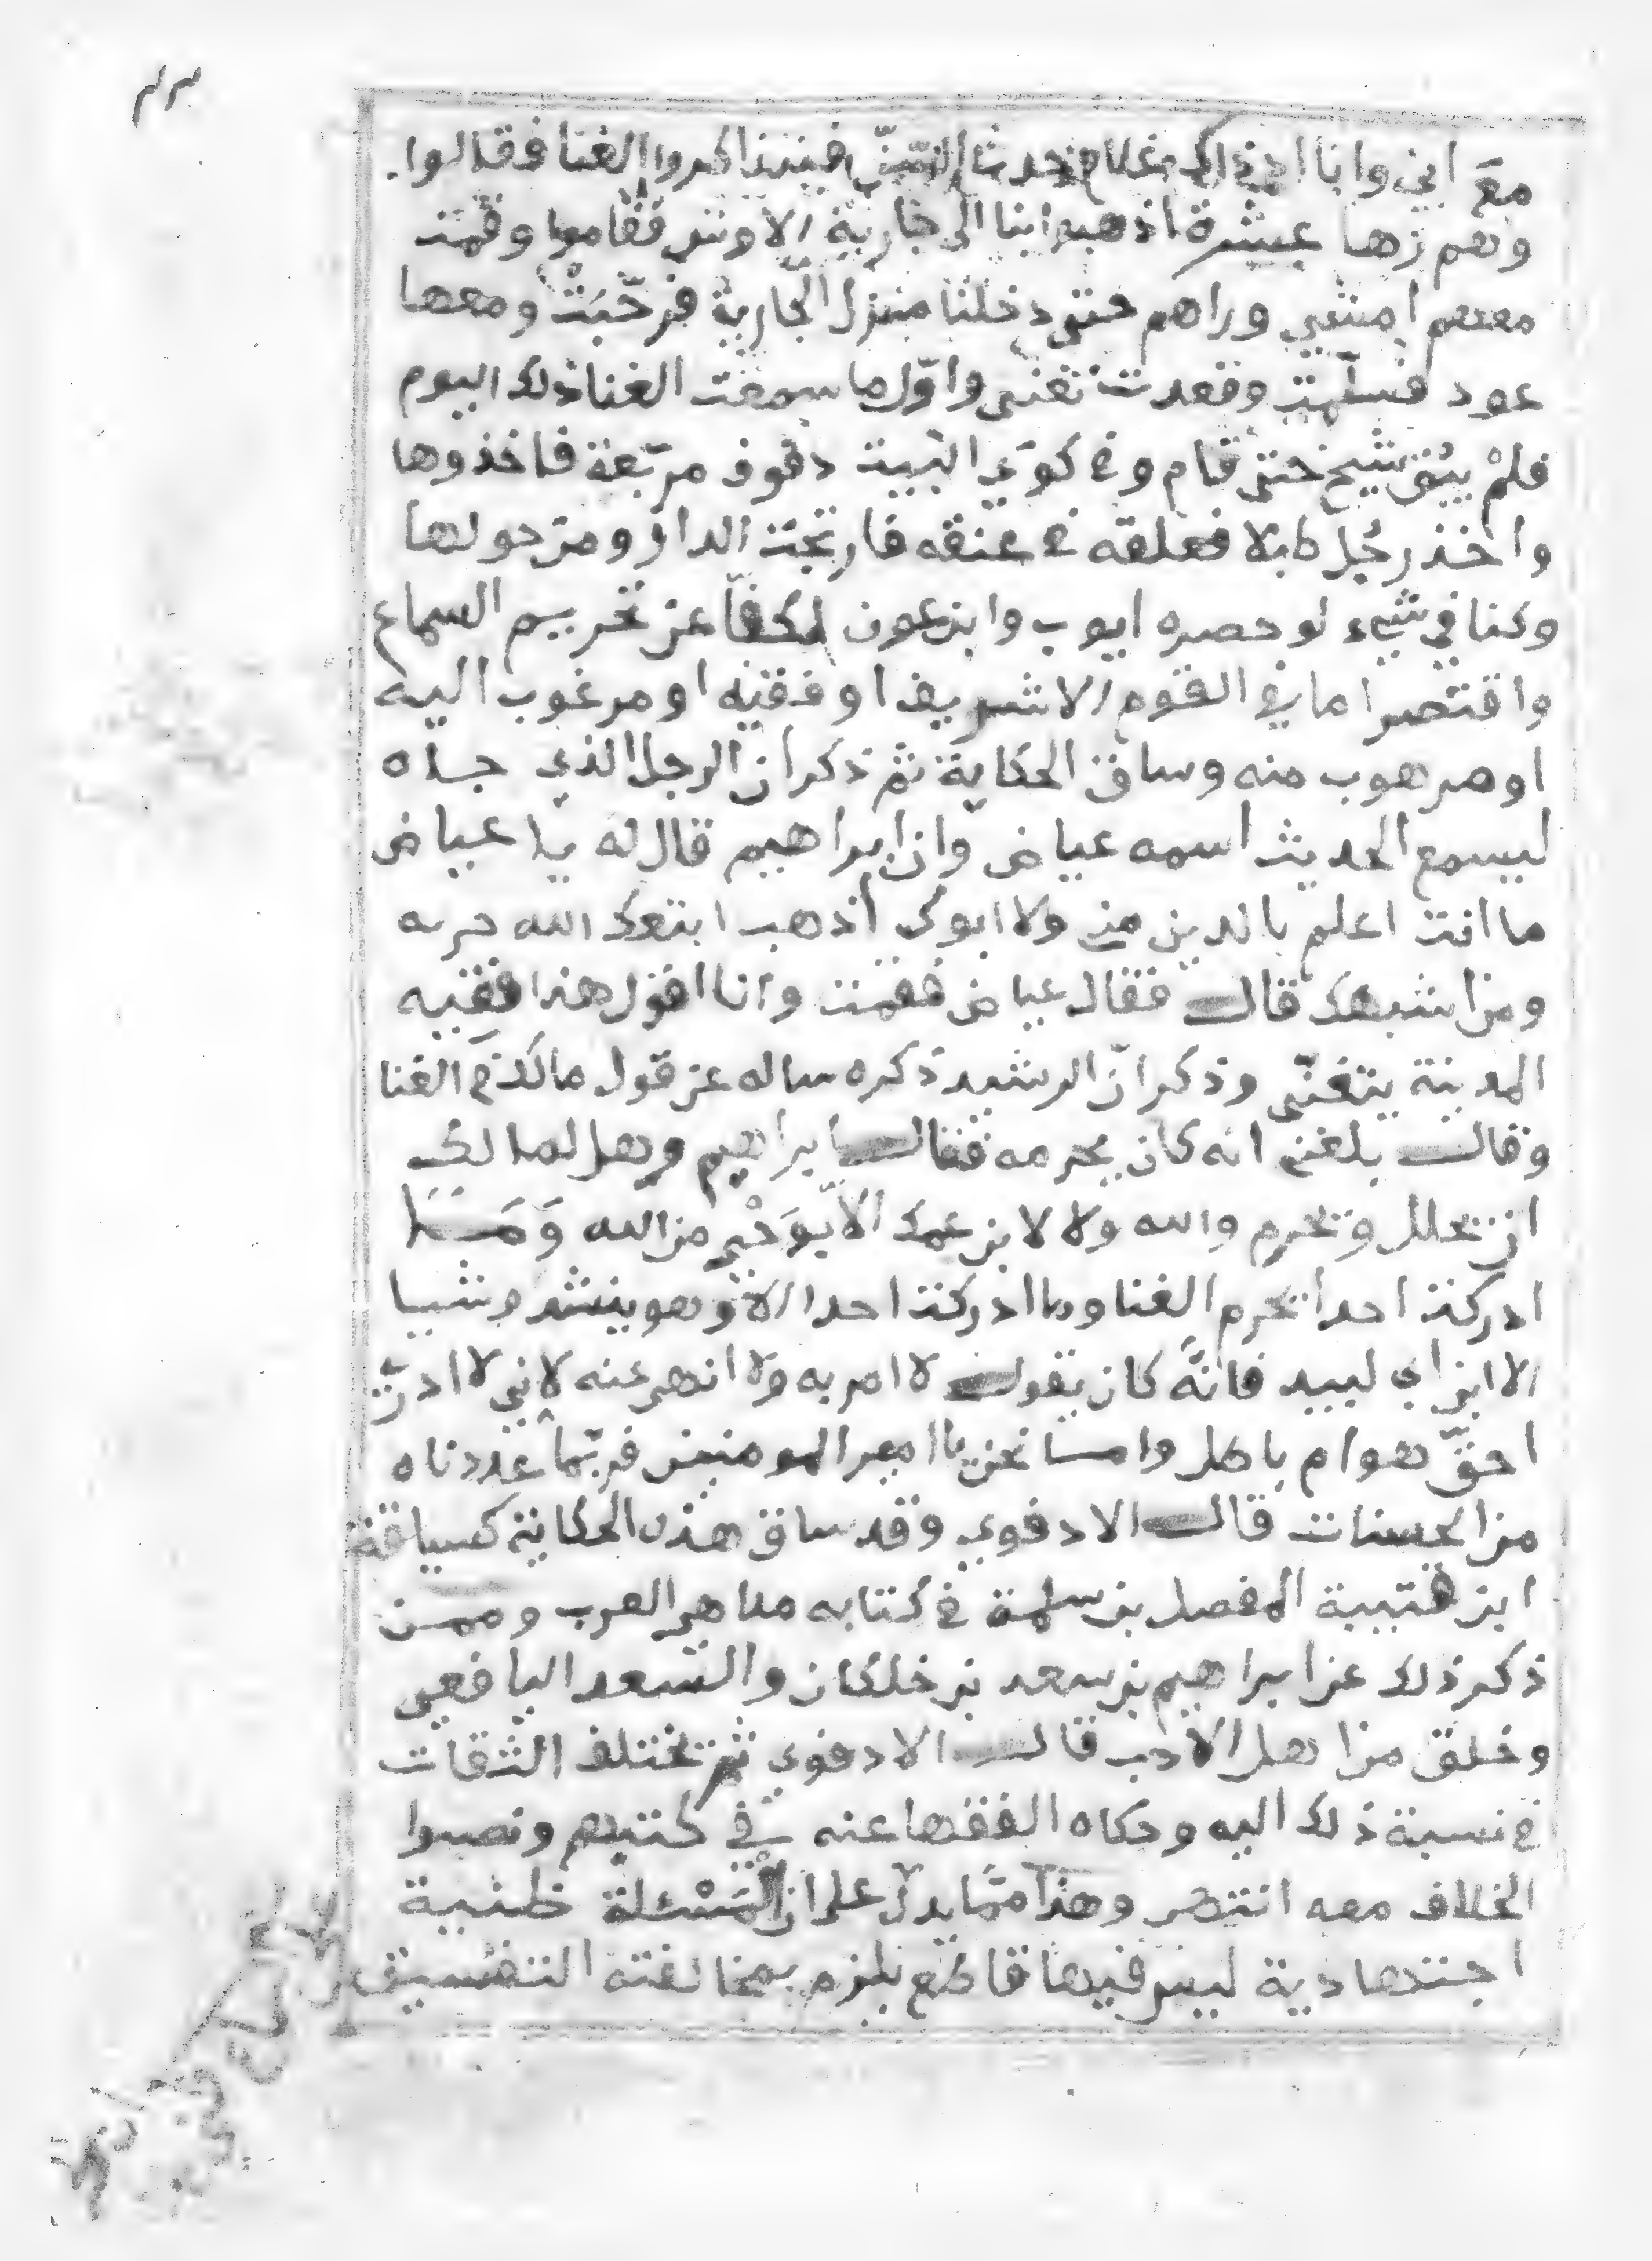 مع ابي وانا اذ ذاك غلام حدث السن فتذاكروا الغنا فقالوا
وهم زها عشرة اذهبوا بنا الى جارية الاوتر فقاموا وقمت
معهم امشي وراهم حتى دخلنا منزل الجارية فرحّبت ومعها
عود فسلمت وقعدت تغنى واوّل ما سمعت الغنا ذلك اليوم
فلمْ يبق شيخ حتى قام وفي كوي البيت دفوف مربّعة فاخذوها
واخذ رجُل طبلا فعلقه في عنقه فارتجت الدار ومن حولها
وكنا في شيء لو حصره ايوب وابن عون لكفّا عن تحريم السماع
واقتصرا ما في القوم الا شريف او فقيه او مرغوب اليه
او مرهوب منه وساق الحكاية ثم ذكر ان الرجل الذي جاه
ليسمع الحديث اسمه عياض وان ابراهيم قال له يا عياض
ما انت اعلم بالدين مني ولا ابوك اذهب ابتعك الله حربه
ومن اشبهك قال فقال عياض فقمت وانا اقول هذا فقيه
المدينة يتغنّى وذكر انّ الرشيد ذكره ساله عن قول مالك في الغنا
وقال بلغني انه كان يحرمه فقال ابراهيم وهل لمالك
ان تحلل وتحرم والله ولا لابن عمك الا بوَحْي من الله وَمَا
ادركت احدا يحرم الغنا وما ادركت احدا الا وهو ينشد شيا
الا ابن ابي لبيد فانّه كان يقول لا امر به ولا انهى عنه لاني لا ادري
احقّ هو ام باطل واما نحن يا امير المومنين فربّما عددناه
من الحسنات قال الادفوي وقد ساق هذه الحكاية كسياقة
ابن قتيبة المفضل بن سلمة في كتابه ملاهي العرب وممن
ذكر ذلك عن ابراهيم بن سعد بن خلكان والسعد اليافعي
وخلق من اهل الادب قال الادفوي ثم تختلف الثقات
في نسبة ذلك اليه وحكاه الفقها عنه في كتبهم ونصبوا
الخلاف معه انتهى وهذا ممّا يدل على ان المسْئلة ظنية
اجتهادية ليس فيها قاطع يلزم بمخالفته التفسيق